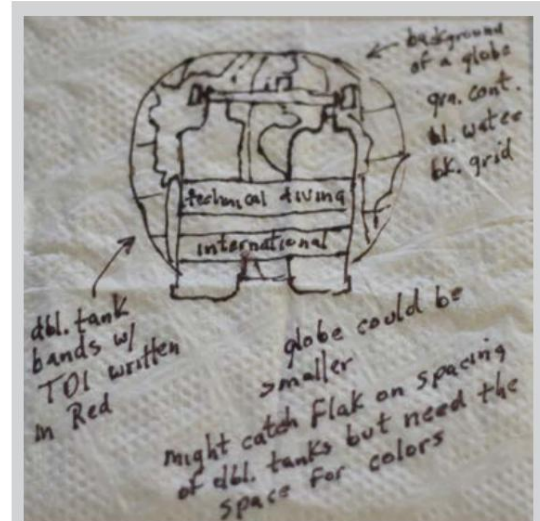 background
of a globe
grn. cont.
bl. water
bk. grid
technical diving
international
dbl. tank
bands w/
TDI written
in Red
globe could be
smaller
might catch Flak on spacing
of dbl. tanks but need the
space for colors